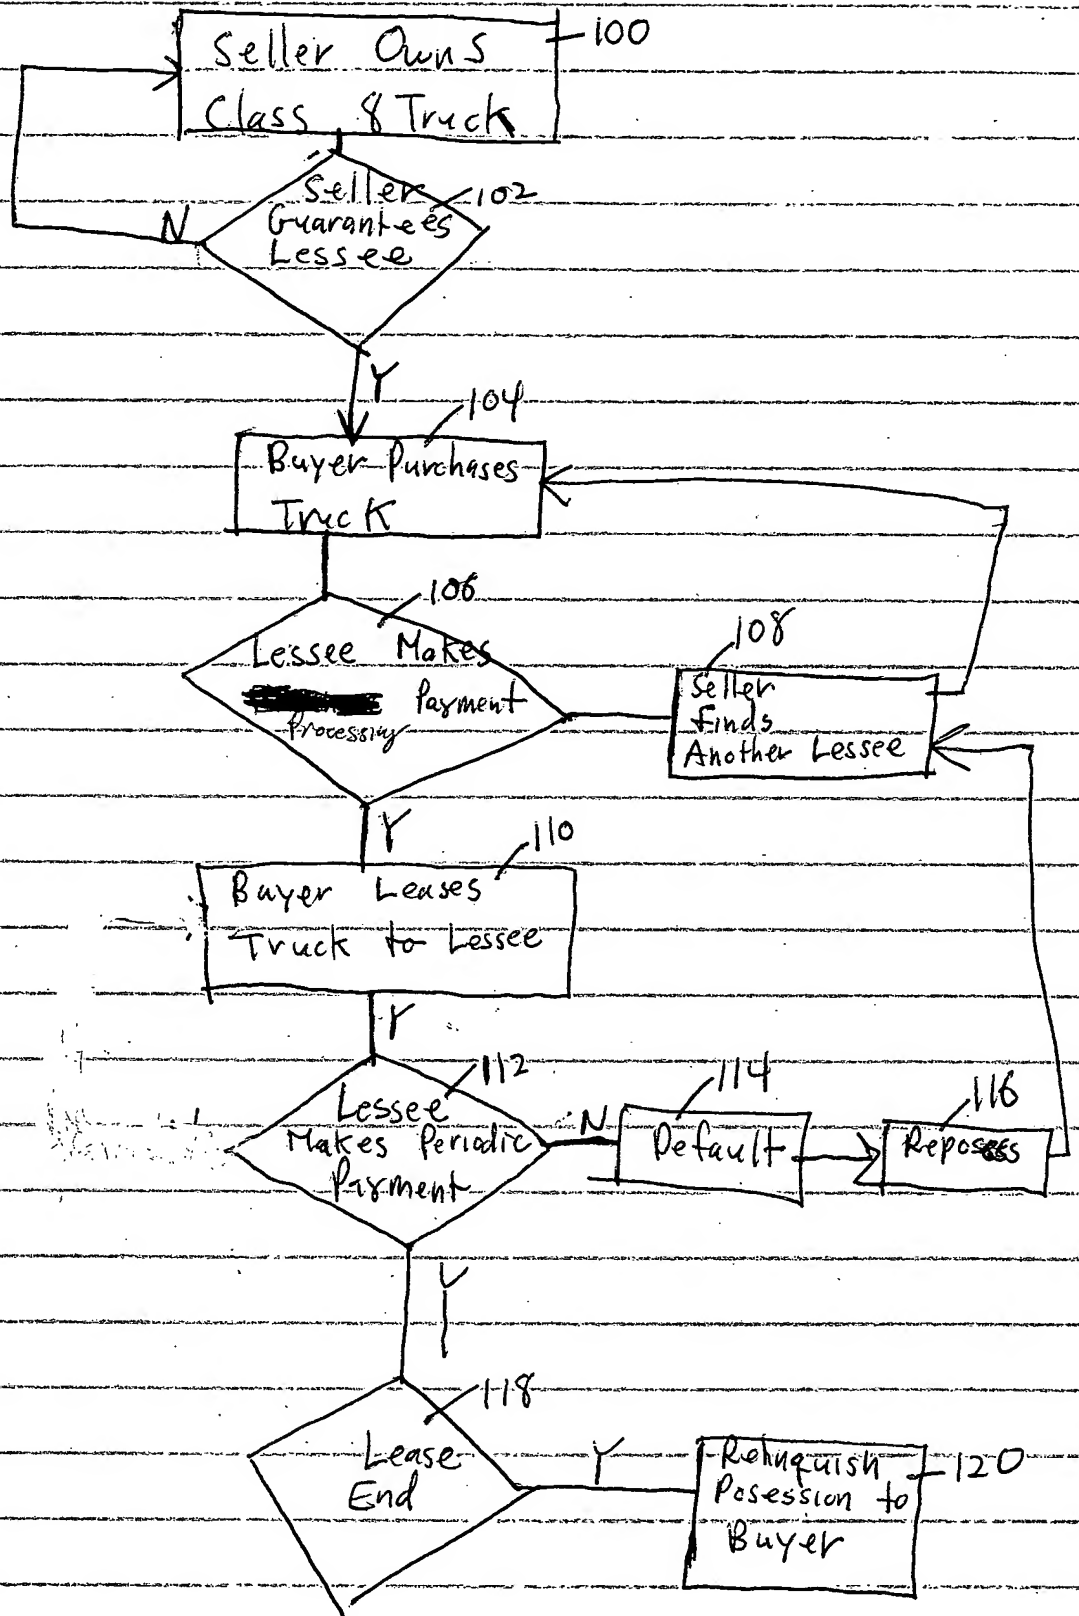 Seller Owns
Class 8 Truck
100
Seller
Guarantees
Lessee
102
N
Y
104
Buyer Purchases
Truck
106
Lessee Makes
Payment
Processing
108
Seller
finds
Another Lessee
Y
110
Buyer Leases
Truck to Lessee
Y
112
Lessee
Makes Periodic
Payment
N
114
Default
116
Reposess
Y
118
Lease
End
Y
Relinquish
Posession to
Buyer
120